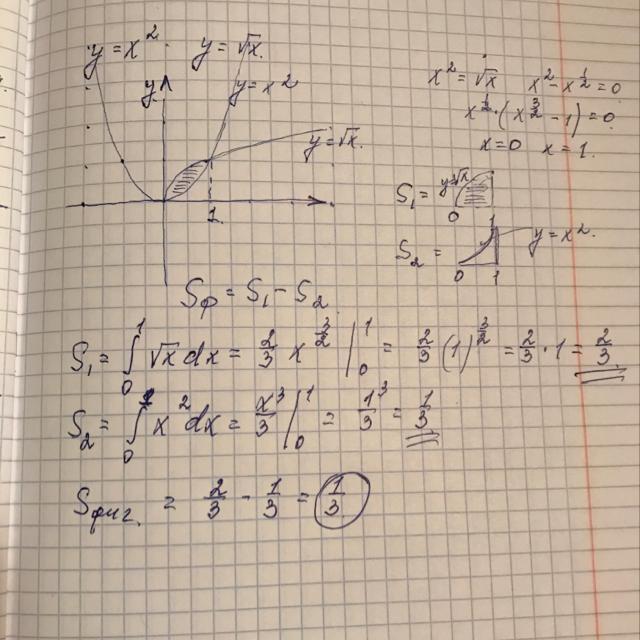 y = x² y = √x
y y = x²
y = √x
1
x² = √x x² - x^{1/2} = 0
x^{1/2} · (x^{3/2} - 1) = 0
x = 0 x = 1.
S₁ = y=√x
0
S₂ = 1 y = x².
0 1
Sф = S₁ - S₂
S₁ = ∫₀¹ √x dx = 2/3 x^{3/2} |₀¹ = 2/3 (1)^{3/2} = 2/3 · 1 = 2/3
S₂ = ∫₀¹ x² dx = x³/3 |₀¹ = 1³/3 = 1/3
Sфиг. = 2/3 - 1/3 = 1/3